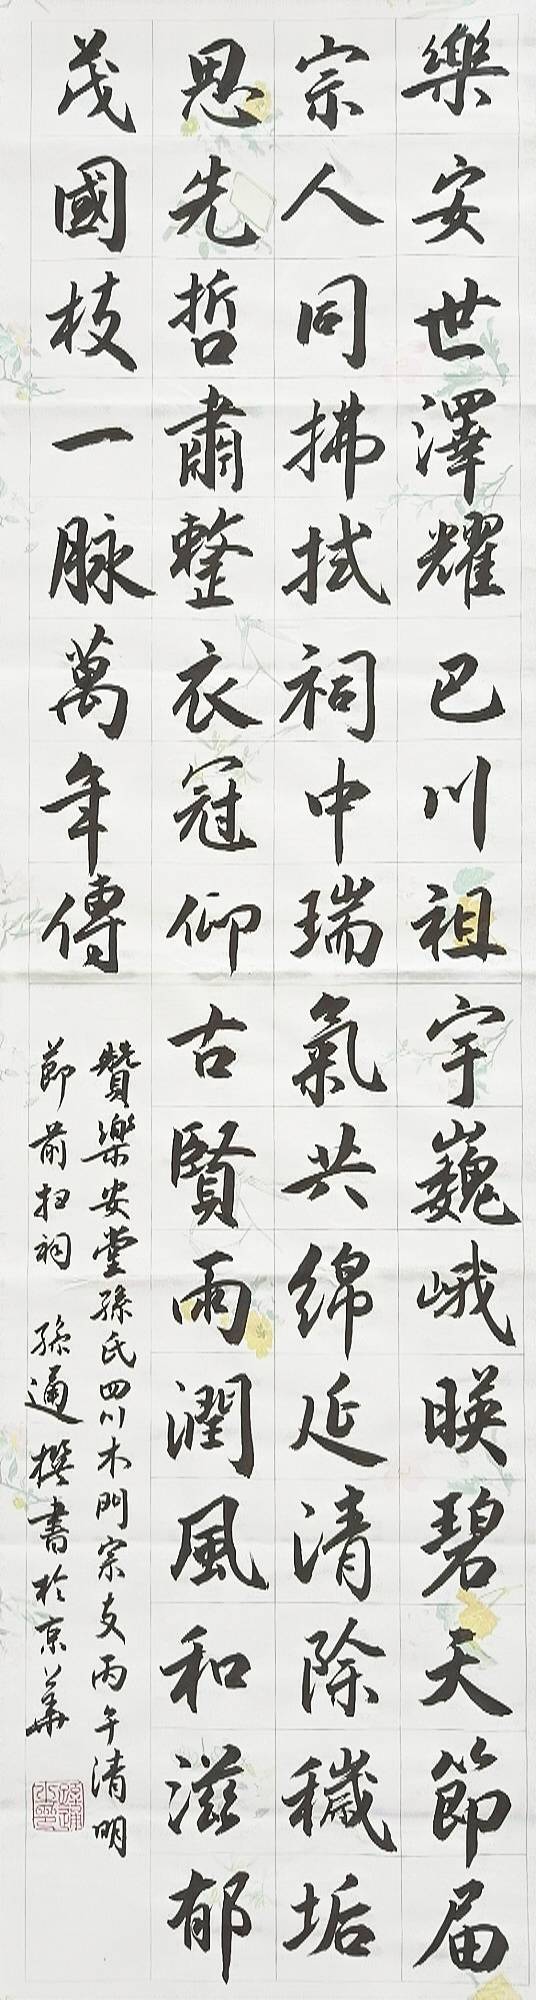 樂安世澤耀巴川祖宇巍峨暎碧天節届
宗人同拂拭祠中瑞氣共綿延清除穢垢
思先哲肅整衣冠仰古賢雨潤風和滋郁
茂國枝一脉萬年傳
贊樂安堂孫氏四川木門宗支丙午清明
節前扫祠 孫通撰書於京華